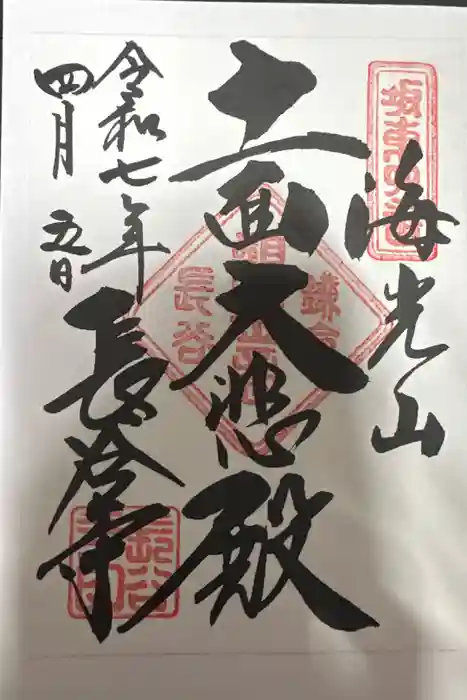 坂東四番
海光山
十一面大悲殿
鎌倉
長谷
令和七年
四月五日
長谷寺